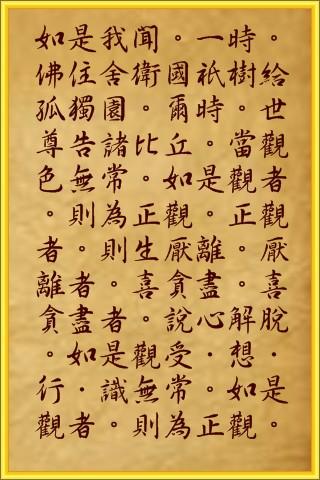 如是我聞。一時。
佛住舍衛國祇樹給
孤獨園。爾時。世
尊告諸比丘。當觀
色無常。如是觀者
。則為正觀。正觀
者。則生厭離。厭
離者。喜貪盡。喜
貪盡者。說心解脫
。如是觀受．想．
行．識無常。如是
觀者。則為正觀。